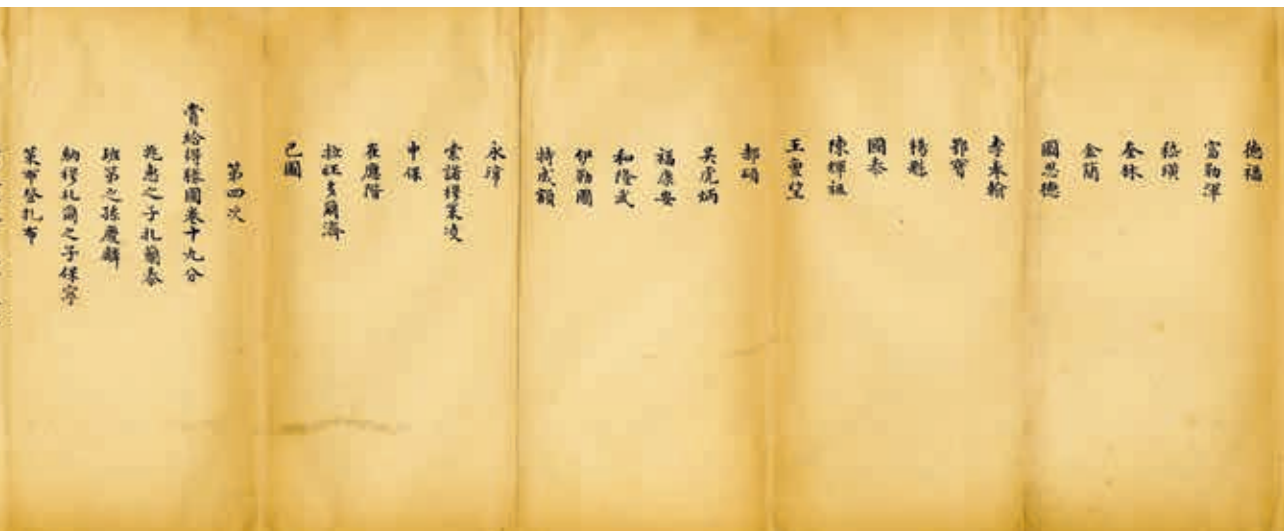 德福
富勒渾
嵇璜
奎林
金簡
圖思德
李奉翰
鄂寶
楊魁
國泰
陳輝祖
王亶望
郝碩
吳虎炳
福康安
和隆武
伊勒圖
特成額
永瑋
索諾穆策凌
申保
拉旺多爾濟
巴圖
第四次
賞給得勝圖卷十九分
兆惠之子扎蘭泰
班第之孫慶麟
納穆扎爾之子保寧
策布登扎布